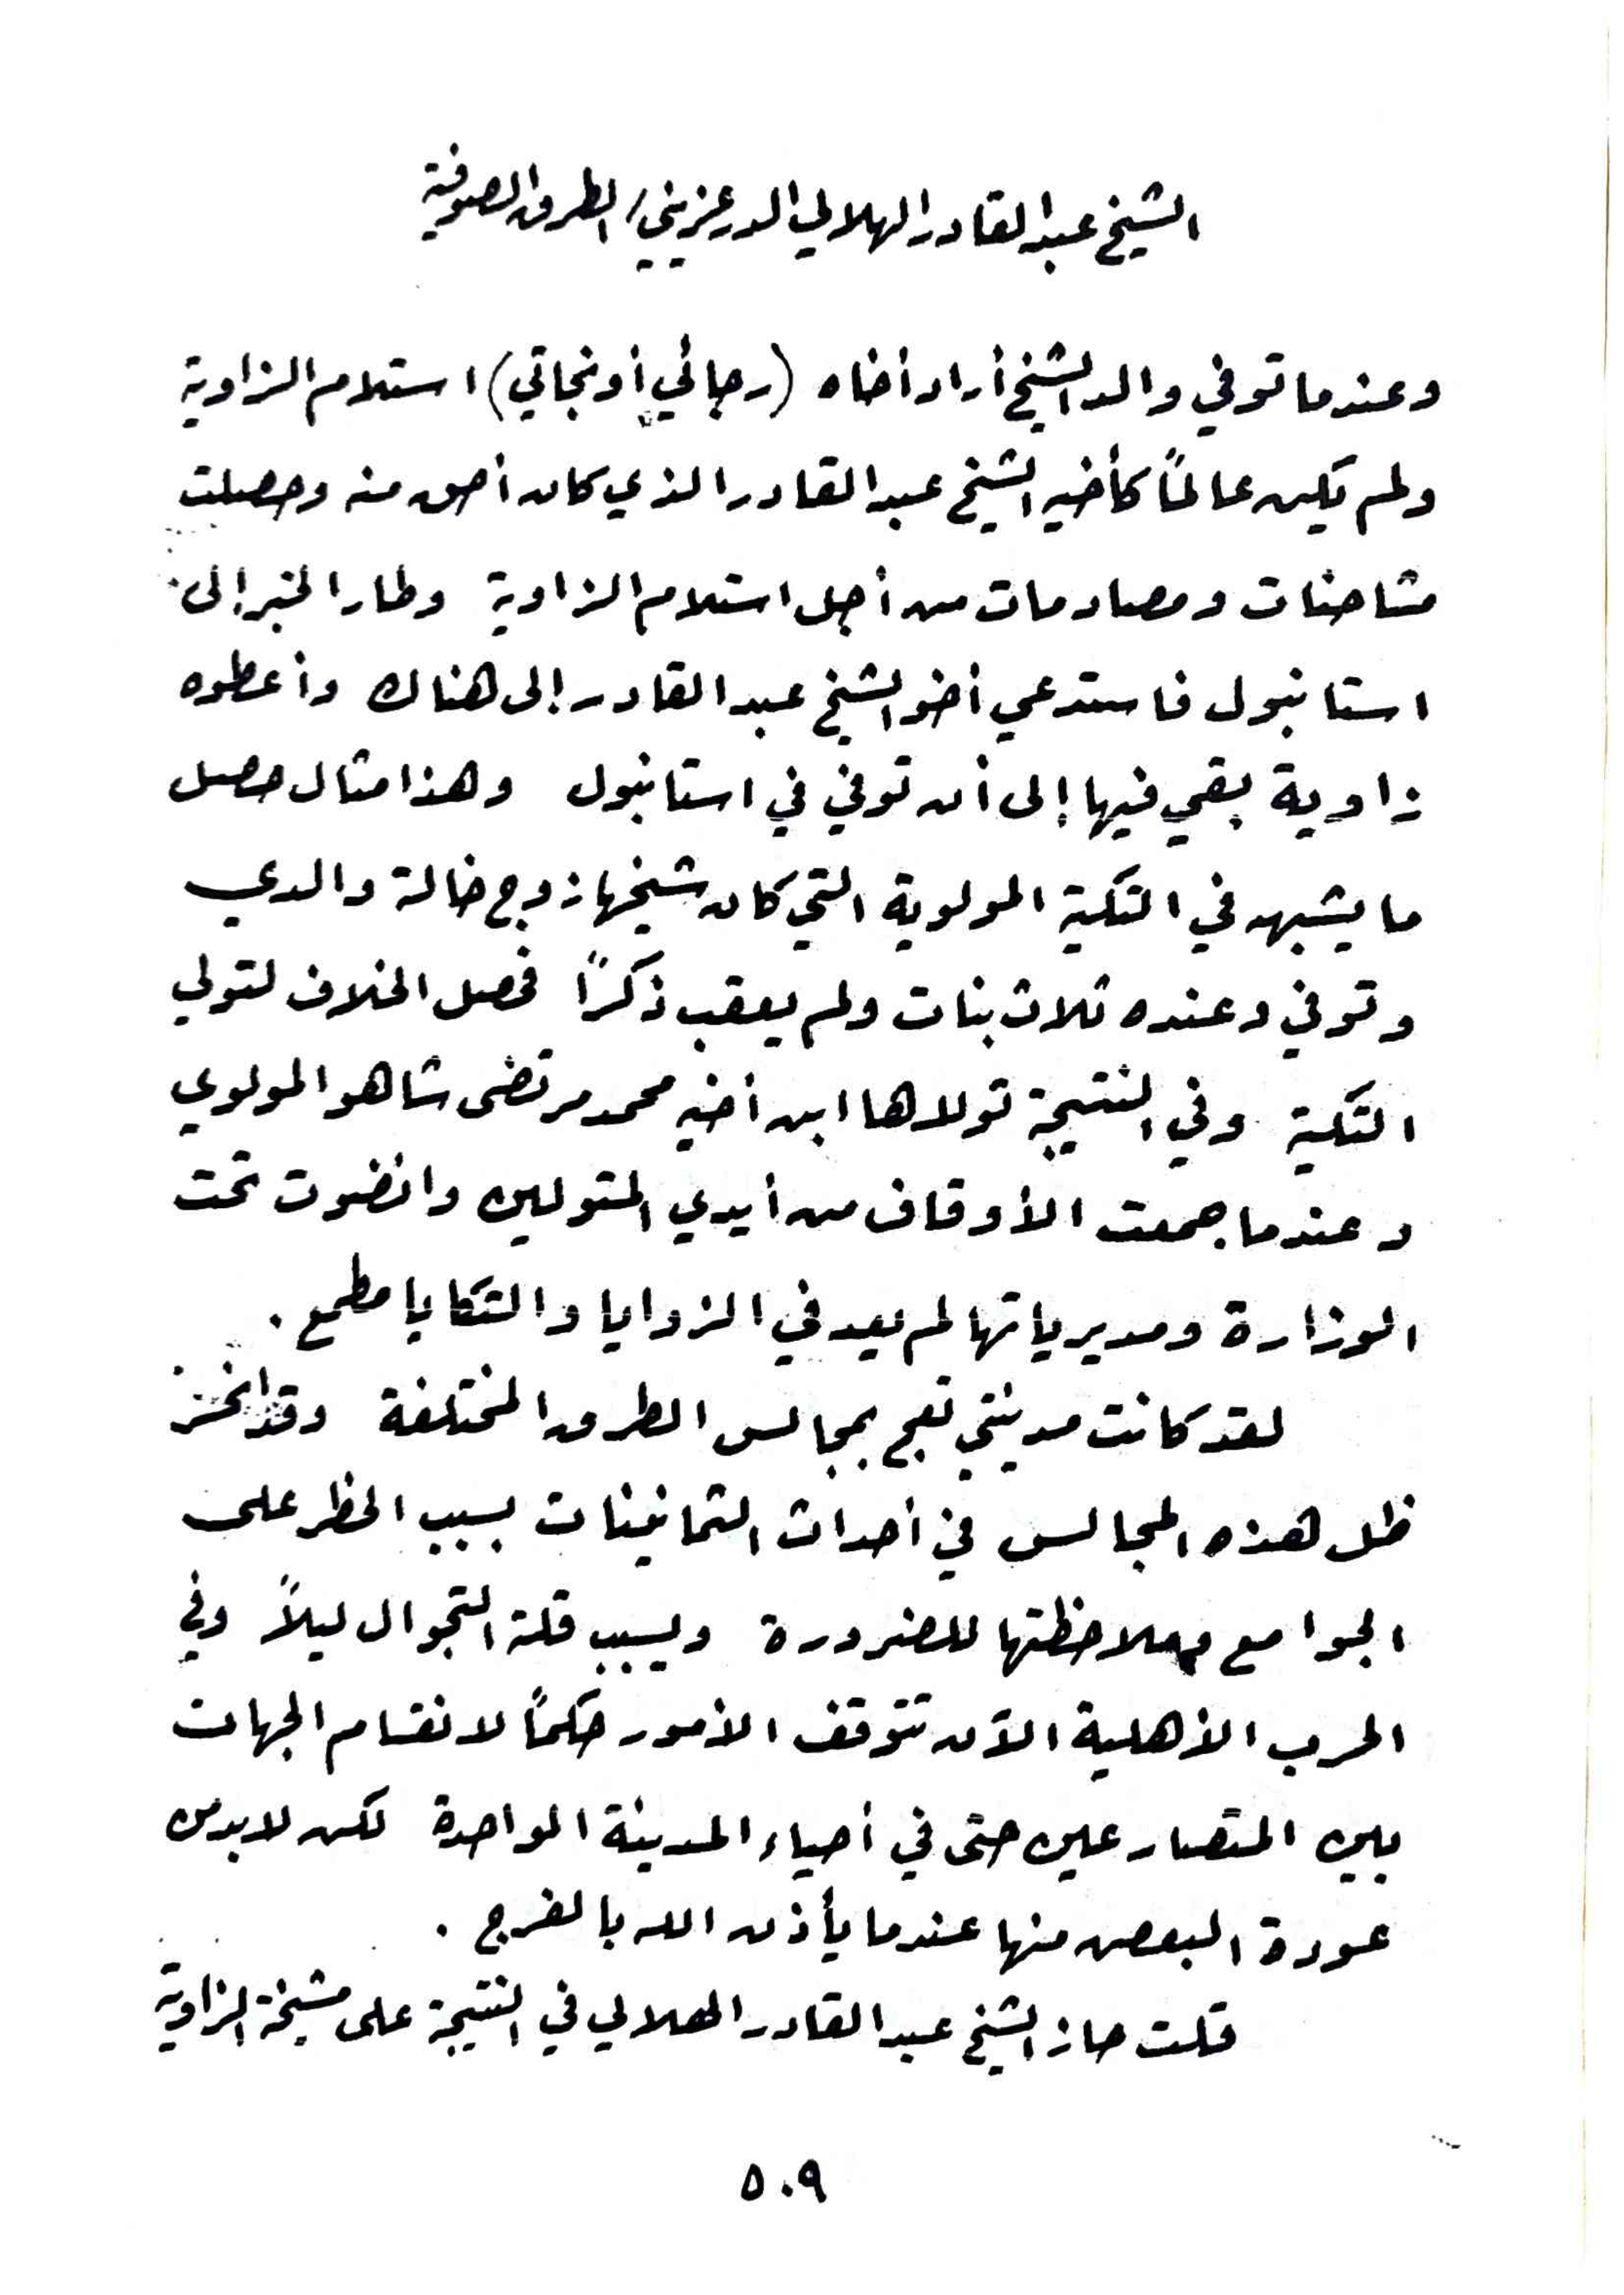 الشيخ عبد القادر الهلالي الدرعزيني / الطرق الصوفية
وعندما توفي والد الشيخ أراد أخاه (رجائي أو نجاتي) استلام الزاوية
ولم يكن عالماً كأخيه الشيخ عبد القادر الذي كان أحق منه وحصلت
مشاحنات ومصادمات من أجل استلام الزاوية وطار الخبر إلى
استانبول فاستدعي أخو الشيخ عبد القادر إلى هناك وأعطوه
زاوية بقي فيها إلى أن توفي في استانبول وهذا مثال حصل
ما يشبهه في التكية المولوية التي كان شيخها زوج خالة والدي
وتوفي وعنده ثلاث بنات ولم يعقب ذكراً فحصل الخلاف لتولي
التكية وفي النتيجة تولاها ابن أخيه محمد مرتضى شاهو المولوي
وعندما جمعت الأوقاف من أيدي المتولين وانضوت تحت
الوزارة ومديرياتها لم يعد في الزوايا والتكايا مطمع .
لقد كانت مدينتي تعج بمجالس الطرق المختلفة وقد
ظل هذه المجالس في أحداث الثمانينات بسبب الحظر على
الجوامع وملاحظتها للضرورة وبسبب قلة التجوال ليلاً وفي
الحرب الأهلية الآن تتوقف الأمور حكماً لانقسام الجهات
بين المتصارعين حتى في أحياء المدينة الواحدة لكن لابد من
عودة البعض منها عندما يأذن الله بالفرج .
قلت حاز الشيخ عبد القادر الهلالي في النتيجة على مشيخة الزاوية
٥٠٩